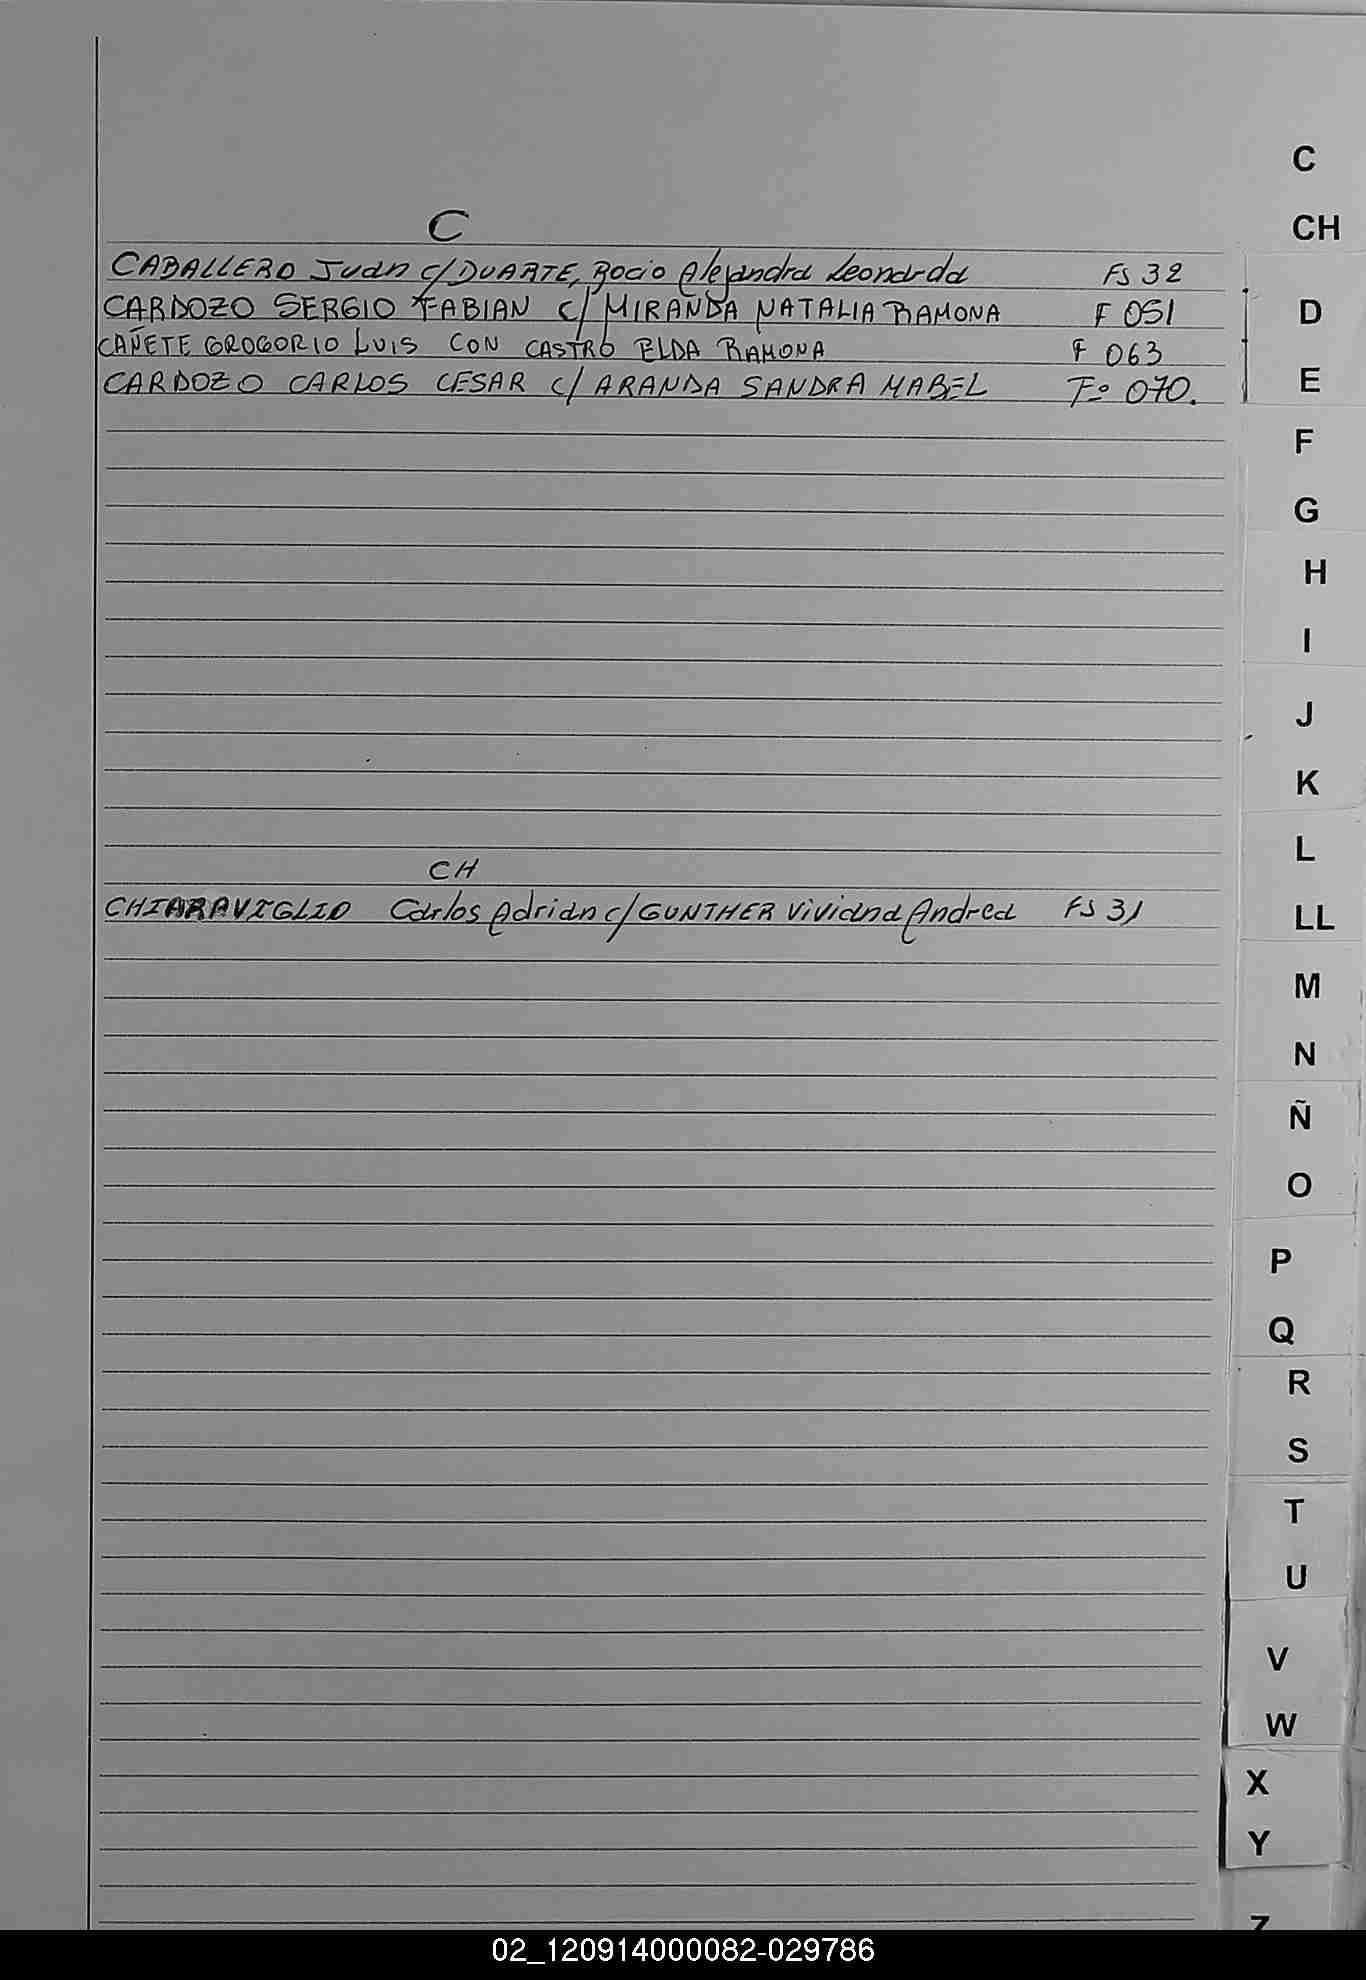 C
CABALLERO Juan c/DUARTE, Rocio Alejandra Leonarda FS 32
CARDOZO SERGIO FABIAN C/ MIRANDA NATALIA RAMONA F 051
CAÑETE GROGORIO LUIS CON CASTRO ELDA RAMONA F 063
CARDOZO CARLOS CESAR C/ ARANDA SANDRA MABEL Fº 070.
CH
CHIARAVIGLIO Carlos Adrian c/GUNTHER Viviana Andrea FS 31
C
CH
D
E
F
G
H
I
J
K
L
LL
M
N
Ñ
O
P
Q
R
S
T
U
V
W
X
Y
Z
02_120914000082-029786